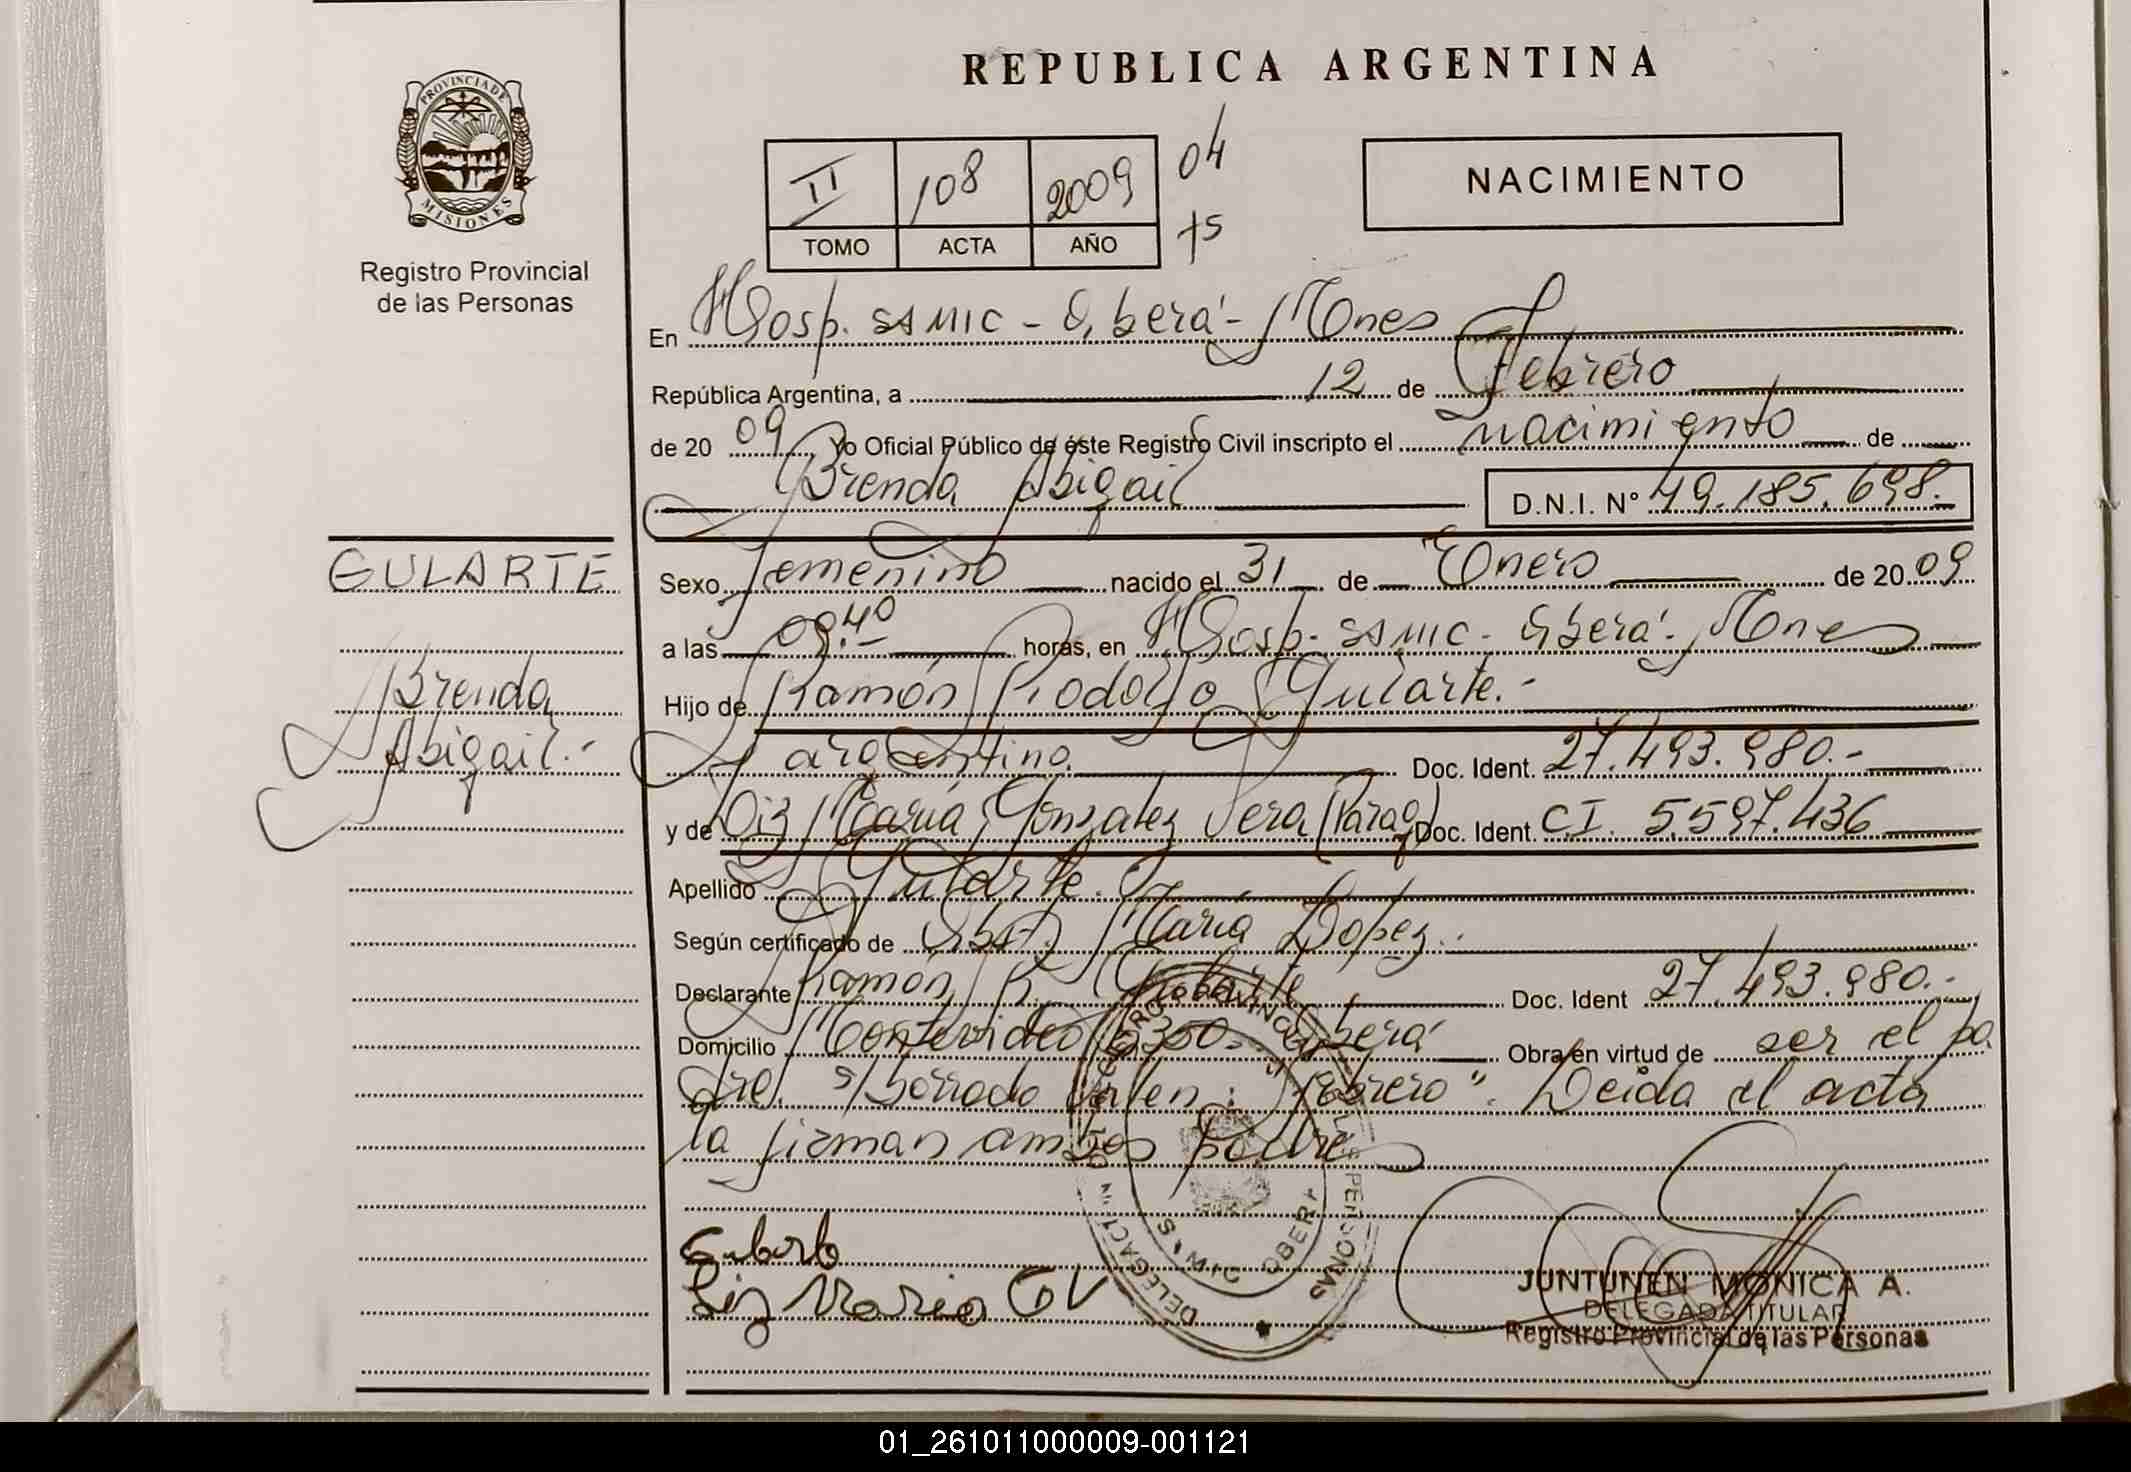 PROVINCIA DE
MISIONES
Registro Provincial
de las Personas
REPUBLICA ARGENTINA
II 108 2009 04
TOMO ACTA AÑO 75
NACIMIENTO
En Hosp. SAMIC - Oberá - Mnes
República Argentina, a 12 de Febrero
de 20 09 Yo Oficial Público de éste Registro Civil inscripto el nacimiento de
Brenda Abigail D.N.I. Nº 49.185.698.-
GULARTE
Brenda
Abigail.-
Sexo femenino nacido el 31 de Enero de 20 09
a las 09.40 horas, en Hosp. SAMIC - Oberá - Mnes
Hijo de Ramón Rodolfo Gularte.-
argentino Doc. Ident. 27.493.980.-
y de Liz María Gonzalez Vera (Parag) Doc. Ident. CI. 5.597.436
Apellido Gularte.
Según certificado de Obst. María Lopez.-
Declarante Ramón R. Gularte Doc. Ident 27.493.980.-
Domicilio Montevideo 6350 - Oberá Obra en virtud de ser el pa
dre. s/borrado valen: "Febrero". Leida el acta
la firman ambos padres
Gularte
Liz Maria GV
DELEGACION S.A.M.I.C OBERA
JUNTUNEN MONICA A.
DELEGADA TITULAR
Registro Provincial de las Personas
01_261011000009-001121